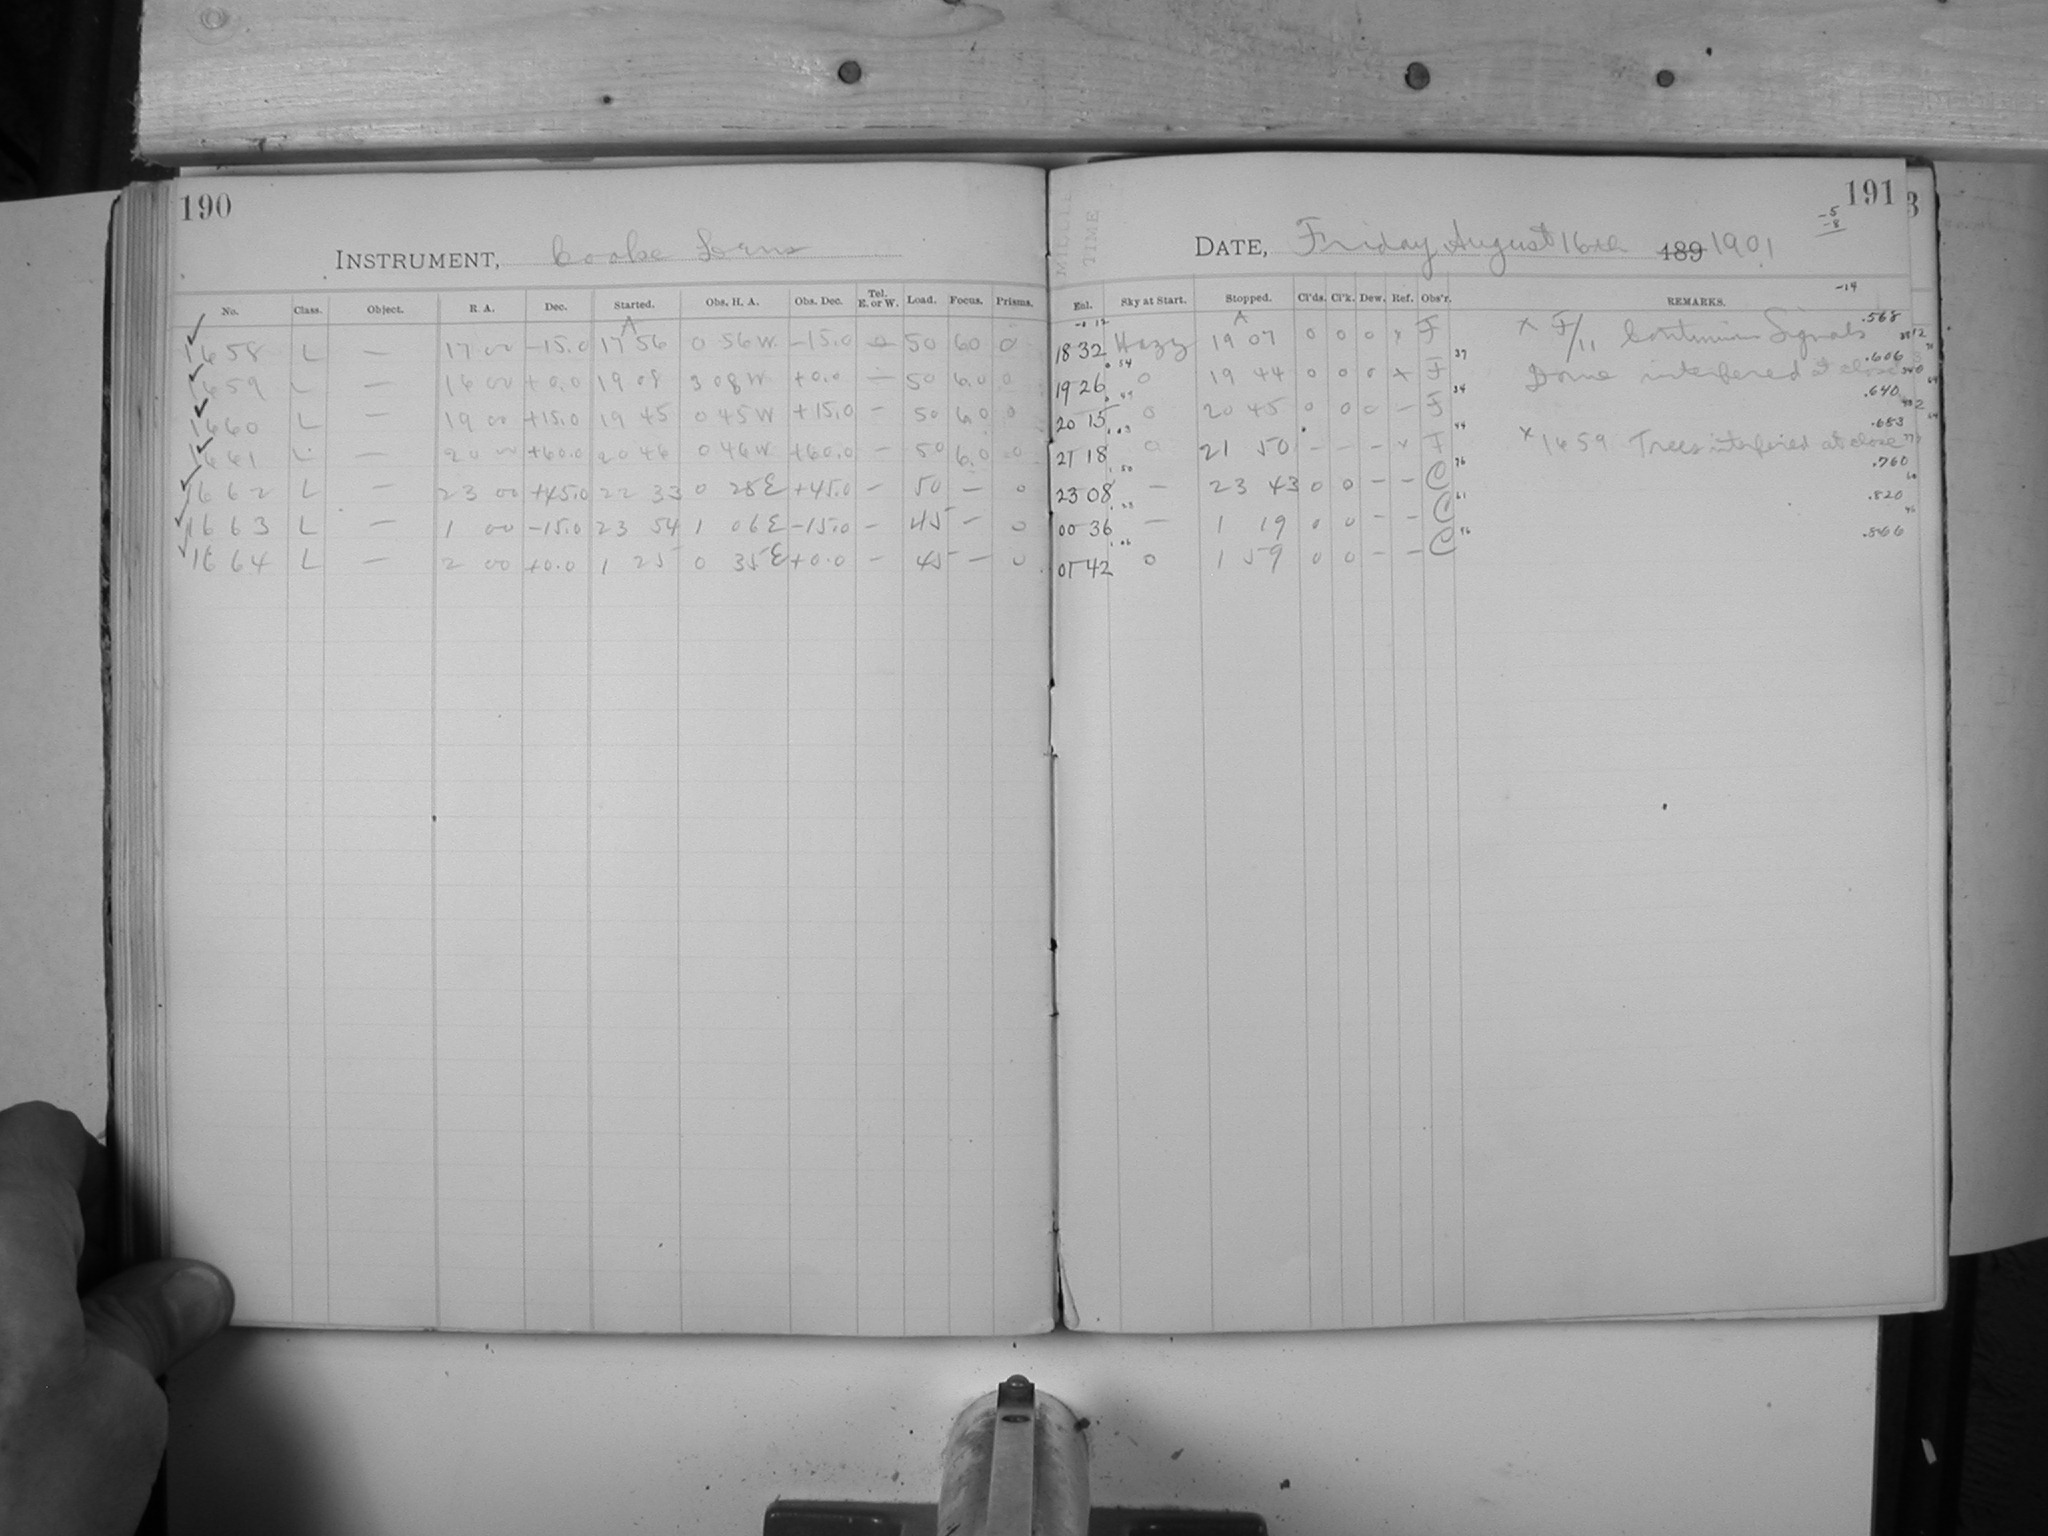 190
INSTRUMENT, Cooke Lens
No. Class. Object. R. A. Dec. Started. Obs. H. A. Obs. Dec. Tel. E. or W. Load. Focus. Prisms.
1658 L — 17 00 −15.0 17 56 0 56 W −15.0 — 50 60 0
1659 L — 16 00 +0.0 19 08 3 08 W +0.0 — 50 6.0 0
1660 L — 19 00 +15.0 19 45 0 45 W +15.0 — 50 6.0 0
1661 L — 20 00 +60.0 20 46 0 46 W +60.0 — 50 6.0 0
1662 L — 23 00 +45.0 22 33 0 28 E +45.0 — 50 — 0
1663 L — 1 00 −15.0 23 54 1 06 E −15.0 — 45 — 0
1664 L — 2 00 +0.0 1 25 0 35 E +0.0 — 45 — 0
191
−5
−8
DATE, Friday August 16th 189 1901
−14
Sky at Start. Stopped. Cl'ds. Cl'k. Dew. Ref. Obs'r. REMARKS.
18 32 Hazy 19 07 0 0 0 x F x F/11 Continuous Signals .568
19 26 0 19 44 0 0 0 x F Dome interfered at close .606
20 15 0 20 45 0 0 0 — F .640
21 18 0 21 50 — — — x F x 1659 Trees interfered at close .683
23 08 — 23 43 0 0 — — C .760
00 36 — 1 19 0 0 — — C .820
01 42 0 1 59 0 0 — — C .866